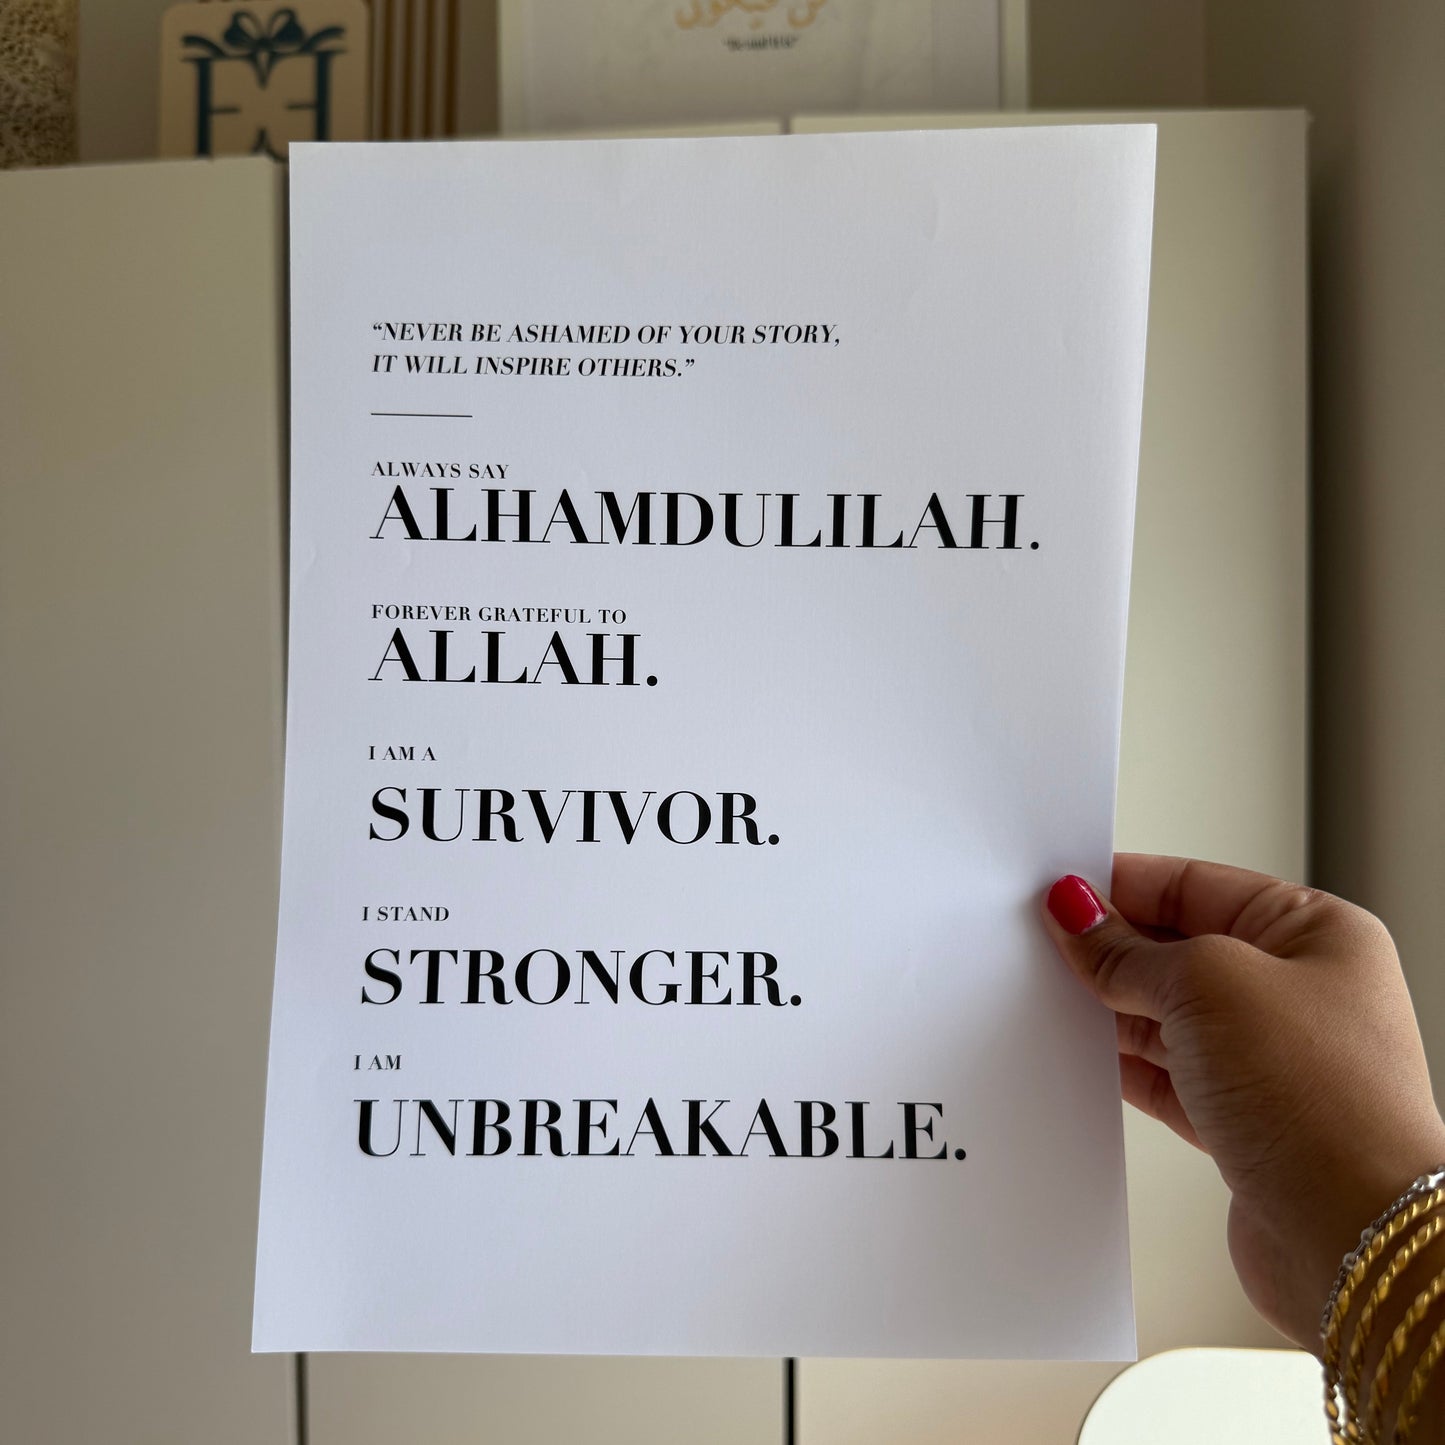 كن فيكون
"Be and it is"
“NEVER BE ASHAMED OF YOUR STORY,
IT WILL INSPIRE OTHERS.”
ALWAYS SAY
ALHAMDULILAH.
FOREVER GRATEFUL TO
ALLAH.
I AM A
SURVIVOR.
I STAND
STRONGER.
I AM
UNBREAKABLE.